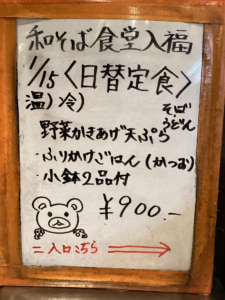 和そば食堂入福
1/15〈日替定食〉
温)冷) そば
うどん
野菜かきあげ天ぷら
・ふりかけごはん(かつお)
・小鉢2品付
¥900.-
=入口こちら